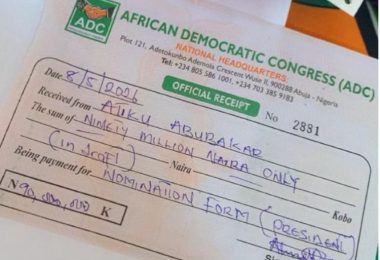 ADC
AFRICAN DEMOCRATIC CONGRESS (ADC)
NATIONAL HEADQUARTERS
Plot 121, Adetokunbo Ademola Crescent Wuse II, 900288 Abuja - Nigeria
Tel: +234 805 586 1001, +234 703 385 9183
OFFICIAL RECEIPT
No 2881
Date 8/5/2026
Received from ATIKU ABUBAKAR
The sum of NINETY MILLION NAIRA ONLY
(in draft) Naira Kobo
Being payment for NOMINATION FORM (PRESIDENT
N90,000,000 K